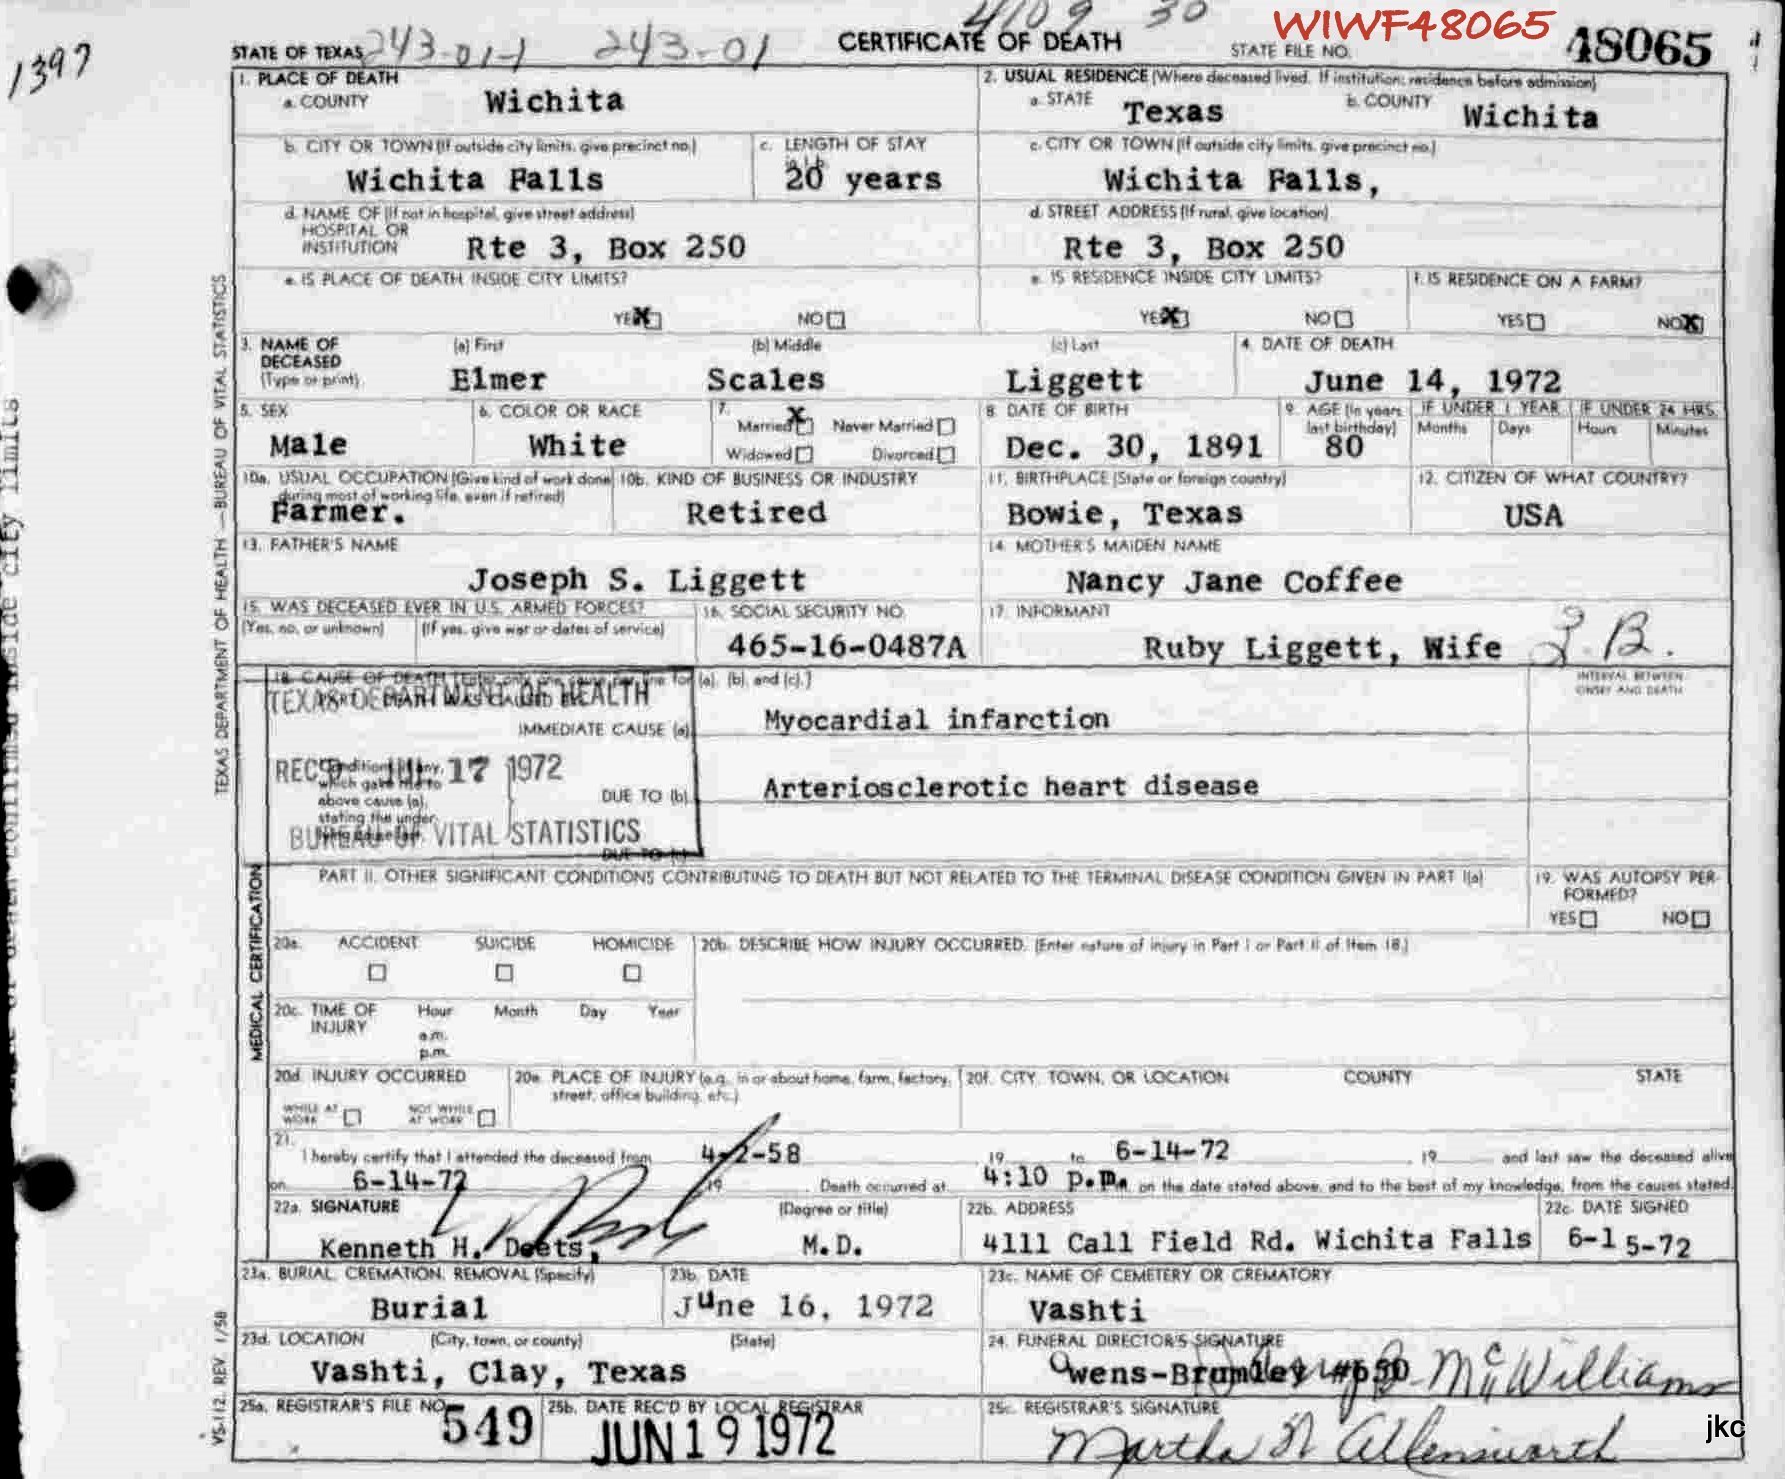 4109 30
WIWF48065
1397
STATE OF TEXAS 243-01-1 243-01 CERTIFICATE OF DEATH STATE FILE NO. 48065
1. PLACE OF DEATH
a. COUNTY Wichita
2. USUAL RESIDENCE (Where deceased lived. If institution: residence before admission)
a. STATE Texas b. COUNTY Wichita
b. CITY OR TOWN (If outside city limits, give precinct no.) Wichita Falls
c. LENGTH OF STAY 20 years
c. CITY OR TOWN (If outside city limits, give precinct no.) Wichita Falls,
d. NAME OF (If not in hospital, give street address) HOSPITAL OR INSTITUTION Rte 3, Box 250
d. STREET ADDRESS (If rural, give location) Rte 3, Box 250
e. IS PLACE OF DEATH INSIDE CITY LIMITS?
YES X NO
e. IS RESIDENCE INSIDE CITY LIMITS?
YES X NO
f. IS RESIDENCE ON A FARM?
YES NO X
3. NAME OF DECEASED (Type or print)
(a) First (b) Middle (c) Last
Elmer Scales Liggett
4. DATE OF DEATH
June 14, 1972
5. SEX Male
6. COLOR OR RACE White
7. Married X Never Married
Widowed Divorced
8. DATE OF BIRTH Dec. 30, 1891
9. AGE (In years last birthday) 80
IF UNDER 1 YEAR Months Days
IF UNDER 24 HRS. Hours Minutes
10a. USUAL OCCUPATION (Give kind of work done during most of working life, even if retired) Farmer.
10b. KIND OF BUSINESS OR INDUSTRY Retired
11. BIRTHPLACE (State or foreign country) Bowie, Texas
12. CITIZEN OF WHAT COUNTRY? USA
13. FATHER'S NAME Joseph S. Liggett
14. MOTHER'S MAIDEN NAME Nancy Jane Coffee
15. WAS DECEASED EVER IN U.S. ARMED FORCES?
(Yes, no, or unknown) (If yes, give war or dates of service)
16. SOCIAL SECURITY NO. 465-16-0487A
17. INFORMANT Ruby Liggett, Wife
18. CAUSE OF DEATH (Enter only one cause per line for (a), (b), and (c).)
INTERVAL BETWEEN ONSET AND DEATH
TEXAS DEPARTMENT OF HEALTH
IMMEDIATE CAUSE (a) Myocardial infarction
REC'D JUL 17 1972
Conditions, if any, which gave rise to above cause (a), stating the under-
DUE TO (b) Arteriosclerotic heart disease
BUREAU OF VITAL STATISTICS
DUE TO (c)
PART II. OTHER SIGNIFICANT CONDITIONS CONTRIBUTING TO DEATH BUT NOT RELATED TO THE TERMINAL DISEASE CONDITION GIVEN IN PART I(a)
19. WAS AUTOPSY PERFORMED?
YES NO
MEDICAL CERTIFICATION
20a. ACCIDENT SUICIDE HOMICIDE
20b. DESCRIBE HOW INJURY OCCURRED. (Enter nature of injury in Part I or Part II of Item 18.)
20c. TIME OF INJURY Hour Month Day Year
a.m.
p.m.
20d. INJURY OCCURRED
WHILE AT WORK NOT WHILE AT WORK
20e. PLACE OF INJURY (e.g., in or about home, farm, factory, street, office building, etc.)
20f. CITY, TOWN, OR LOCATION COUNTY STATE
21. I hereby certify that I attended the deceased from 4-2-58 19 to 6-14-72, 19 and last saw the deceased alive
on 6-14-72 19 . Death occurred at 4:10 p.m. on the date stated above, and to the best of my knowledge, from the causes stated.
22a. SIGNATURE (Degree or title)
Kenneth H. Deets, M.D.
22b. ADDRESS 4111 Call Field Rd. Wichita Falls
22c. DATE SIGNED 6-15-72
23a. BURIAL, CREMATION, REMOVAL (Specify) Burial
23b. DATE June 16, 1972
23c. NAME OF CEMETERY OR CREMATORY Vashti
23d. LOCATION (City, town, or county) (State)
Vashti, Clay, Texas
24. FUNERAL DIRECTOR'S SIGNATURE
Owens-Brumley #650 McWilliams
25a. REGISTRAR'S FILE NO. 549
25b. DATE REC'D BY LOCAL REGISTRAR JUN 19 1972
25c. REGISTRAR'S SIGNATURE
Martha N Allensworth
jkc
TEXAS DEPARTMENT OF HEALTH — BUREAU OF VITAL STATISTICS
VS-112. REV 1/58